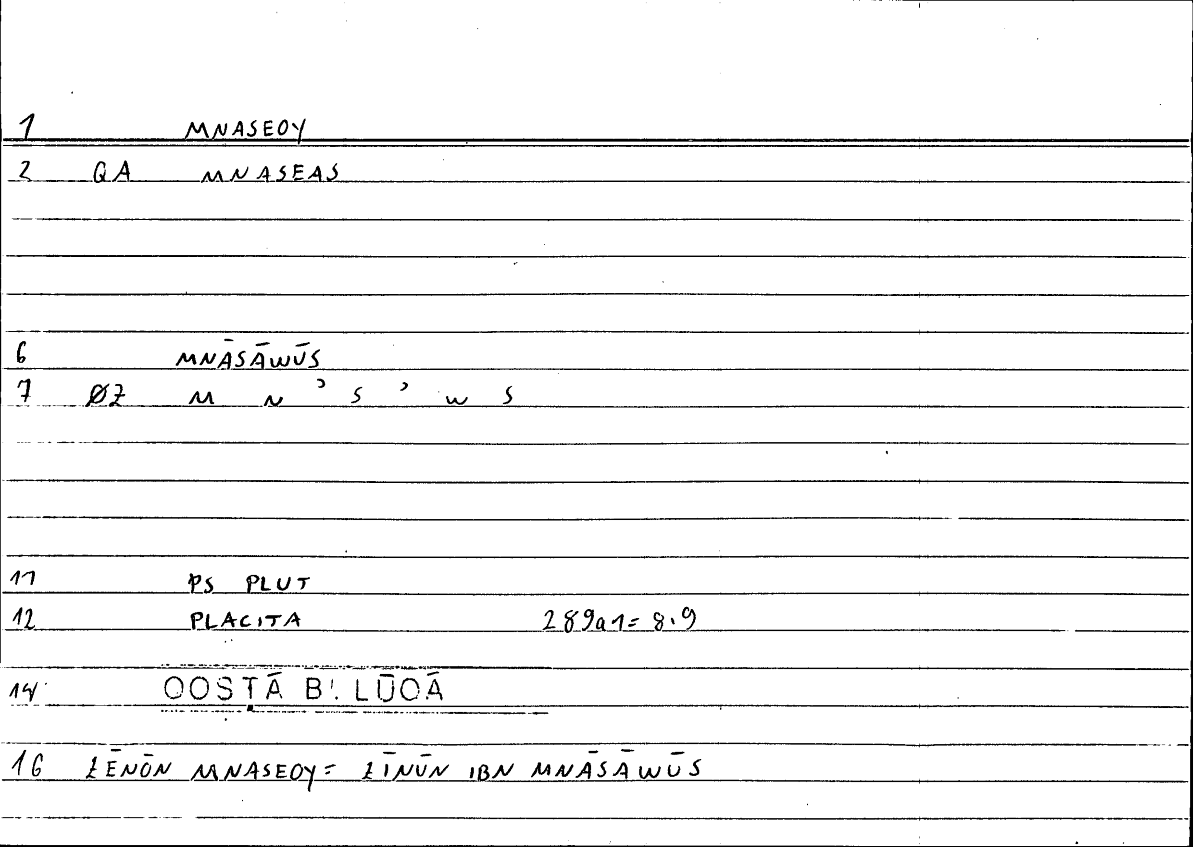 1 MNASEOY
2 QA MNASEAS
6 MNĀSĀWŪS
7 ØZ M N ʾ S ʾ W S
11 PS PLUT
12 PLACITA 289a1= 8.9
14 QOSTĀ B. LŪQĀ
16 ZĒNŌN MNASEOY= ZĪNŪN IBN MNĀSĀWŪS